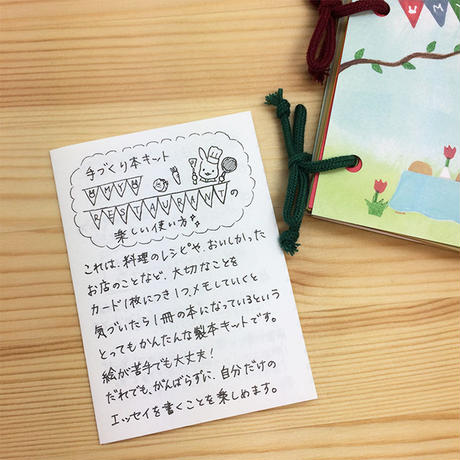 手づくり本キット
RESTAURANTの
楽しい使い方
これは、料理のレシピや、おいしかった
お店のことなど、大切なことを
カード1枚につき1つ、メモしていくと
気づいたら1冊の本になっているという
とってもかんたんな製本キットです。
絵が苦手でも大丈夫!
だれでも、がんばらずに、自分だけの
エッセイを書くことを楽しめます。